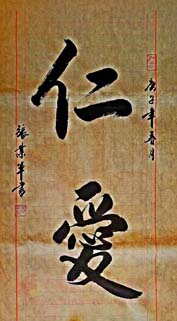 庚子年春月
仁愛
張業軍書